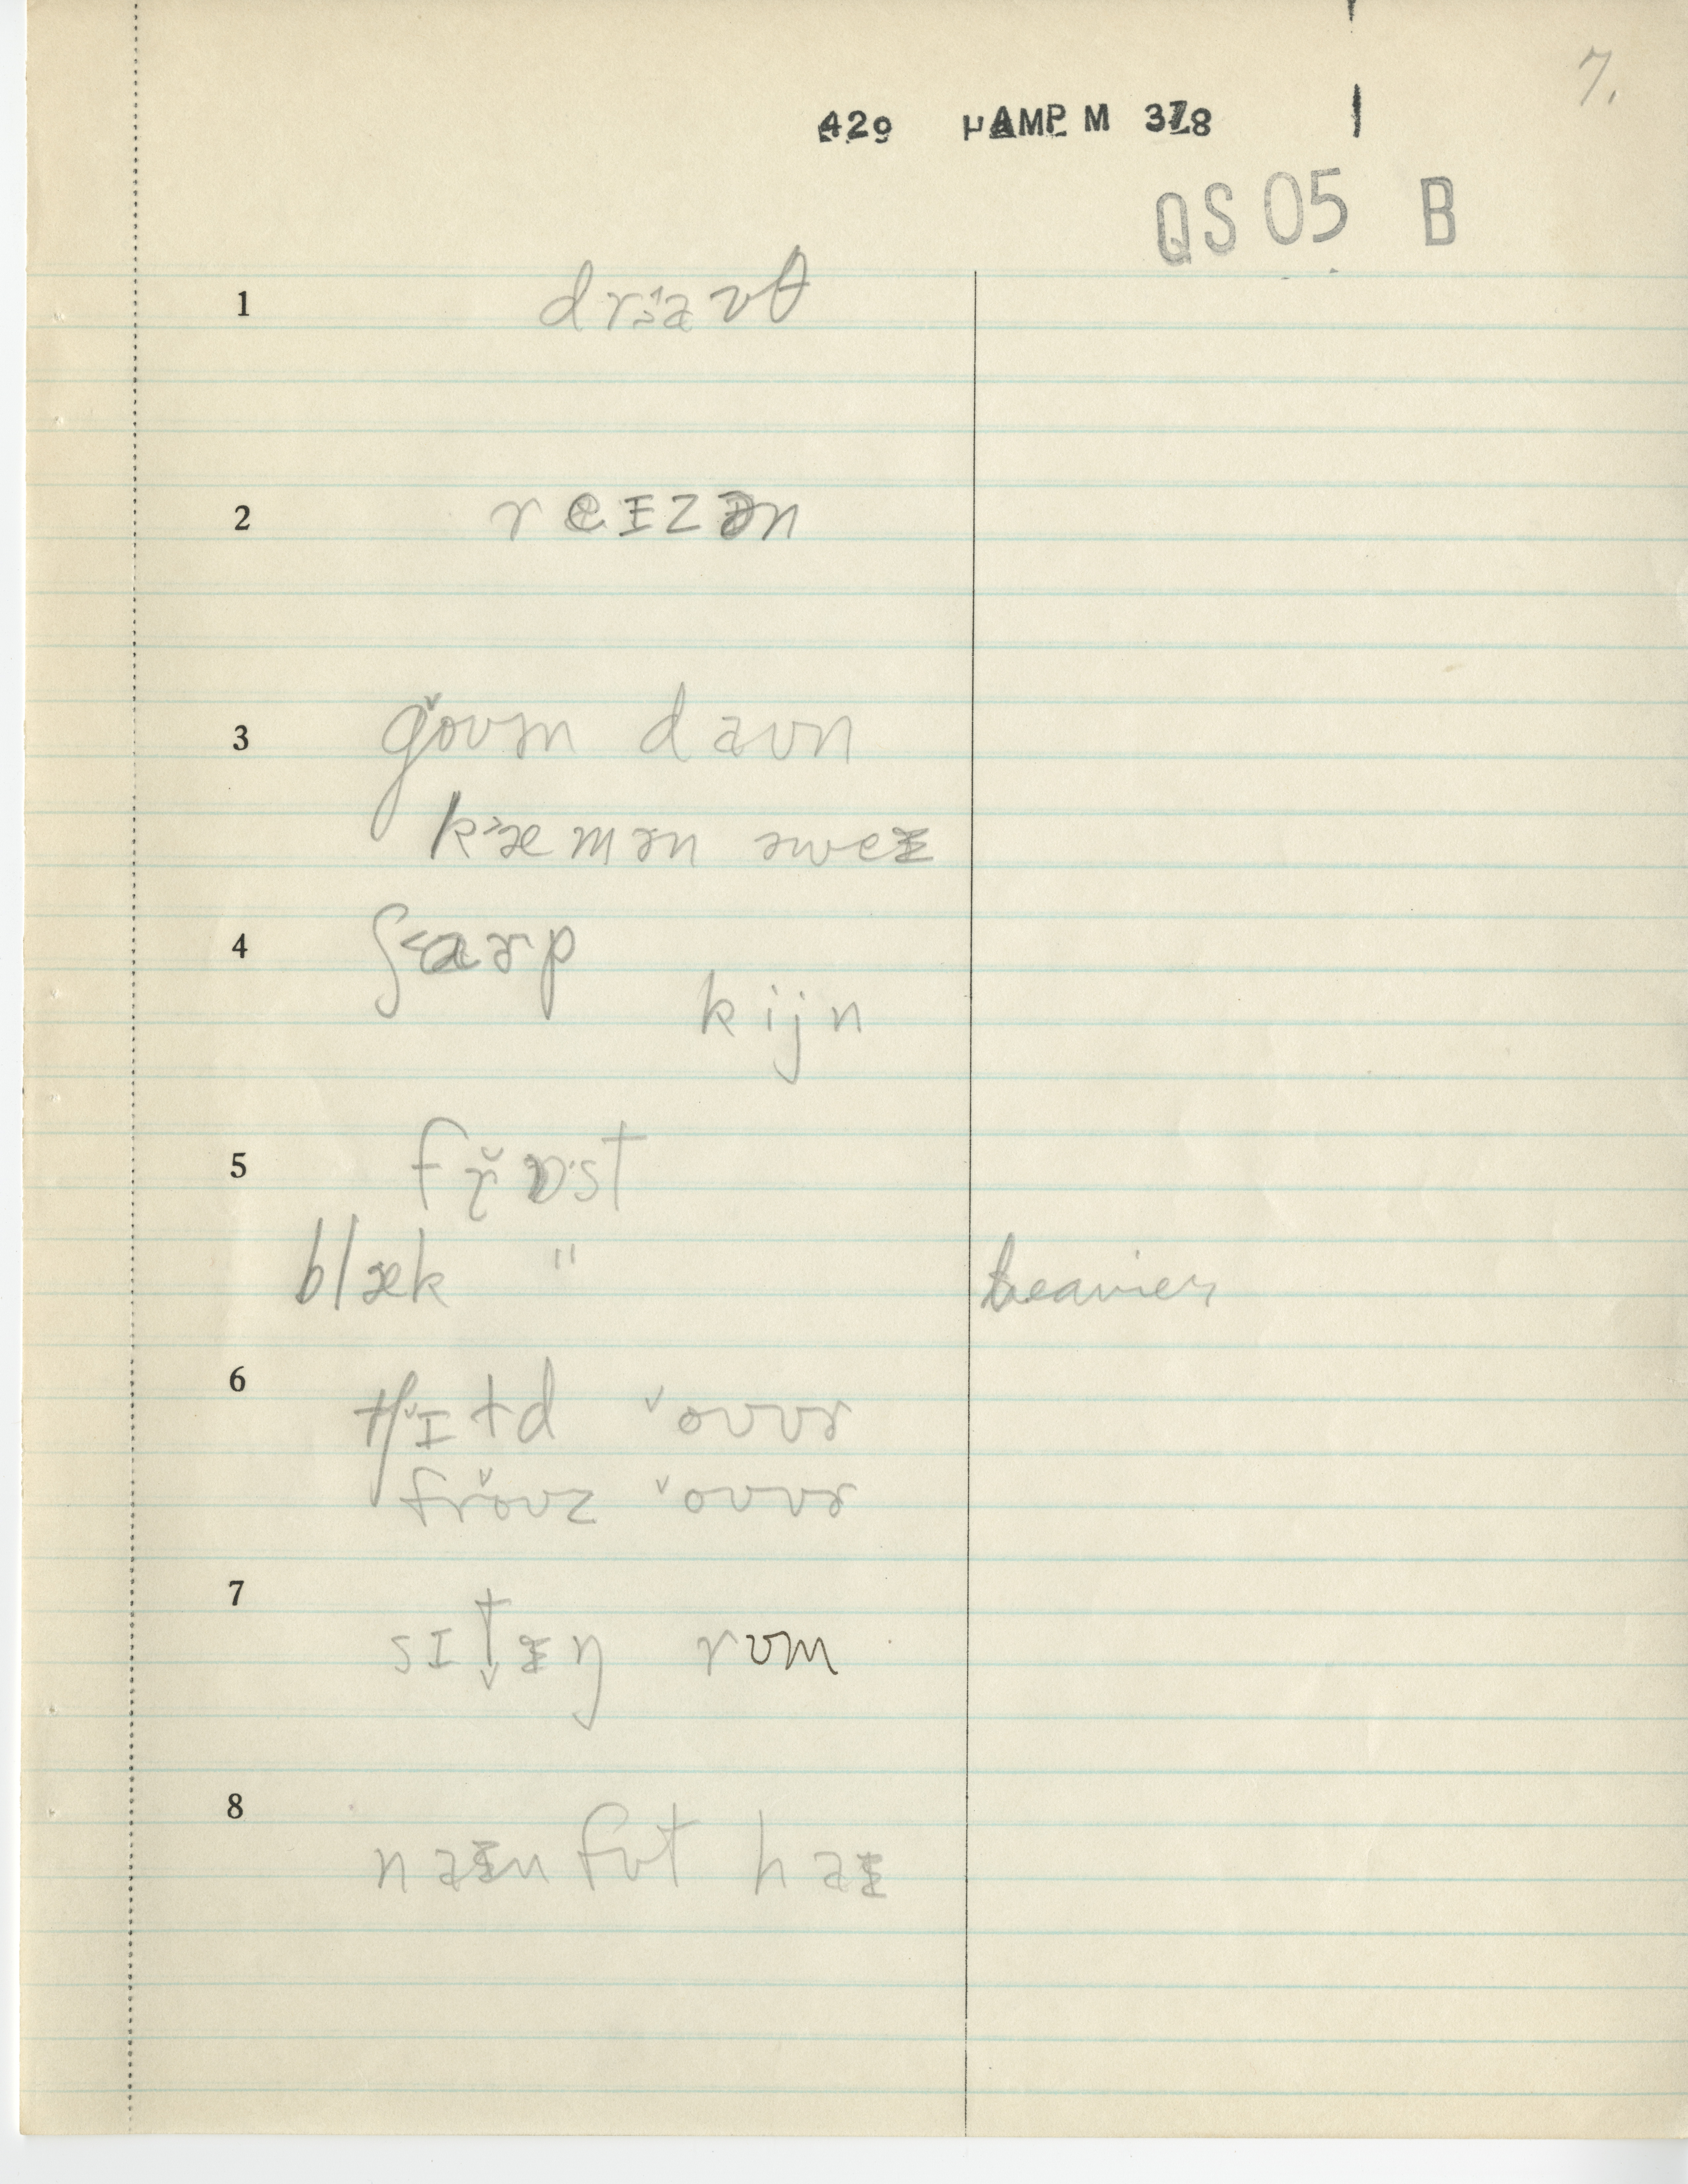 7.
429 µAMP M 378
QS 05 B
1 drɜ˞aʊθ
2 reɪzən
3 goʊɪn daʊn
kæmən əweɪ
4 ʃɑɚp
kijn
5 frɒst
blæk "
heavier
6 tʃɪld oʊvɚ
froʊz oʊvɚ
7 sɪtɪŋ rʊm
8 naɪn fʊt haɪ